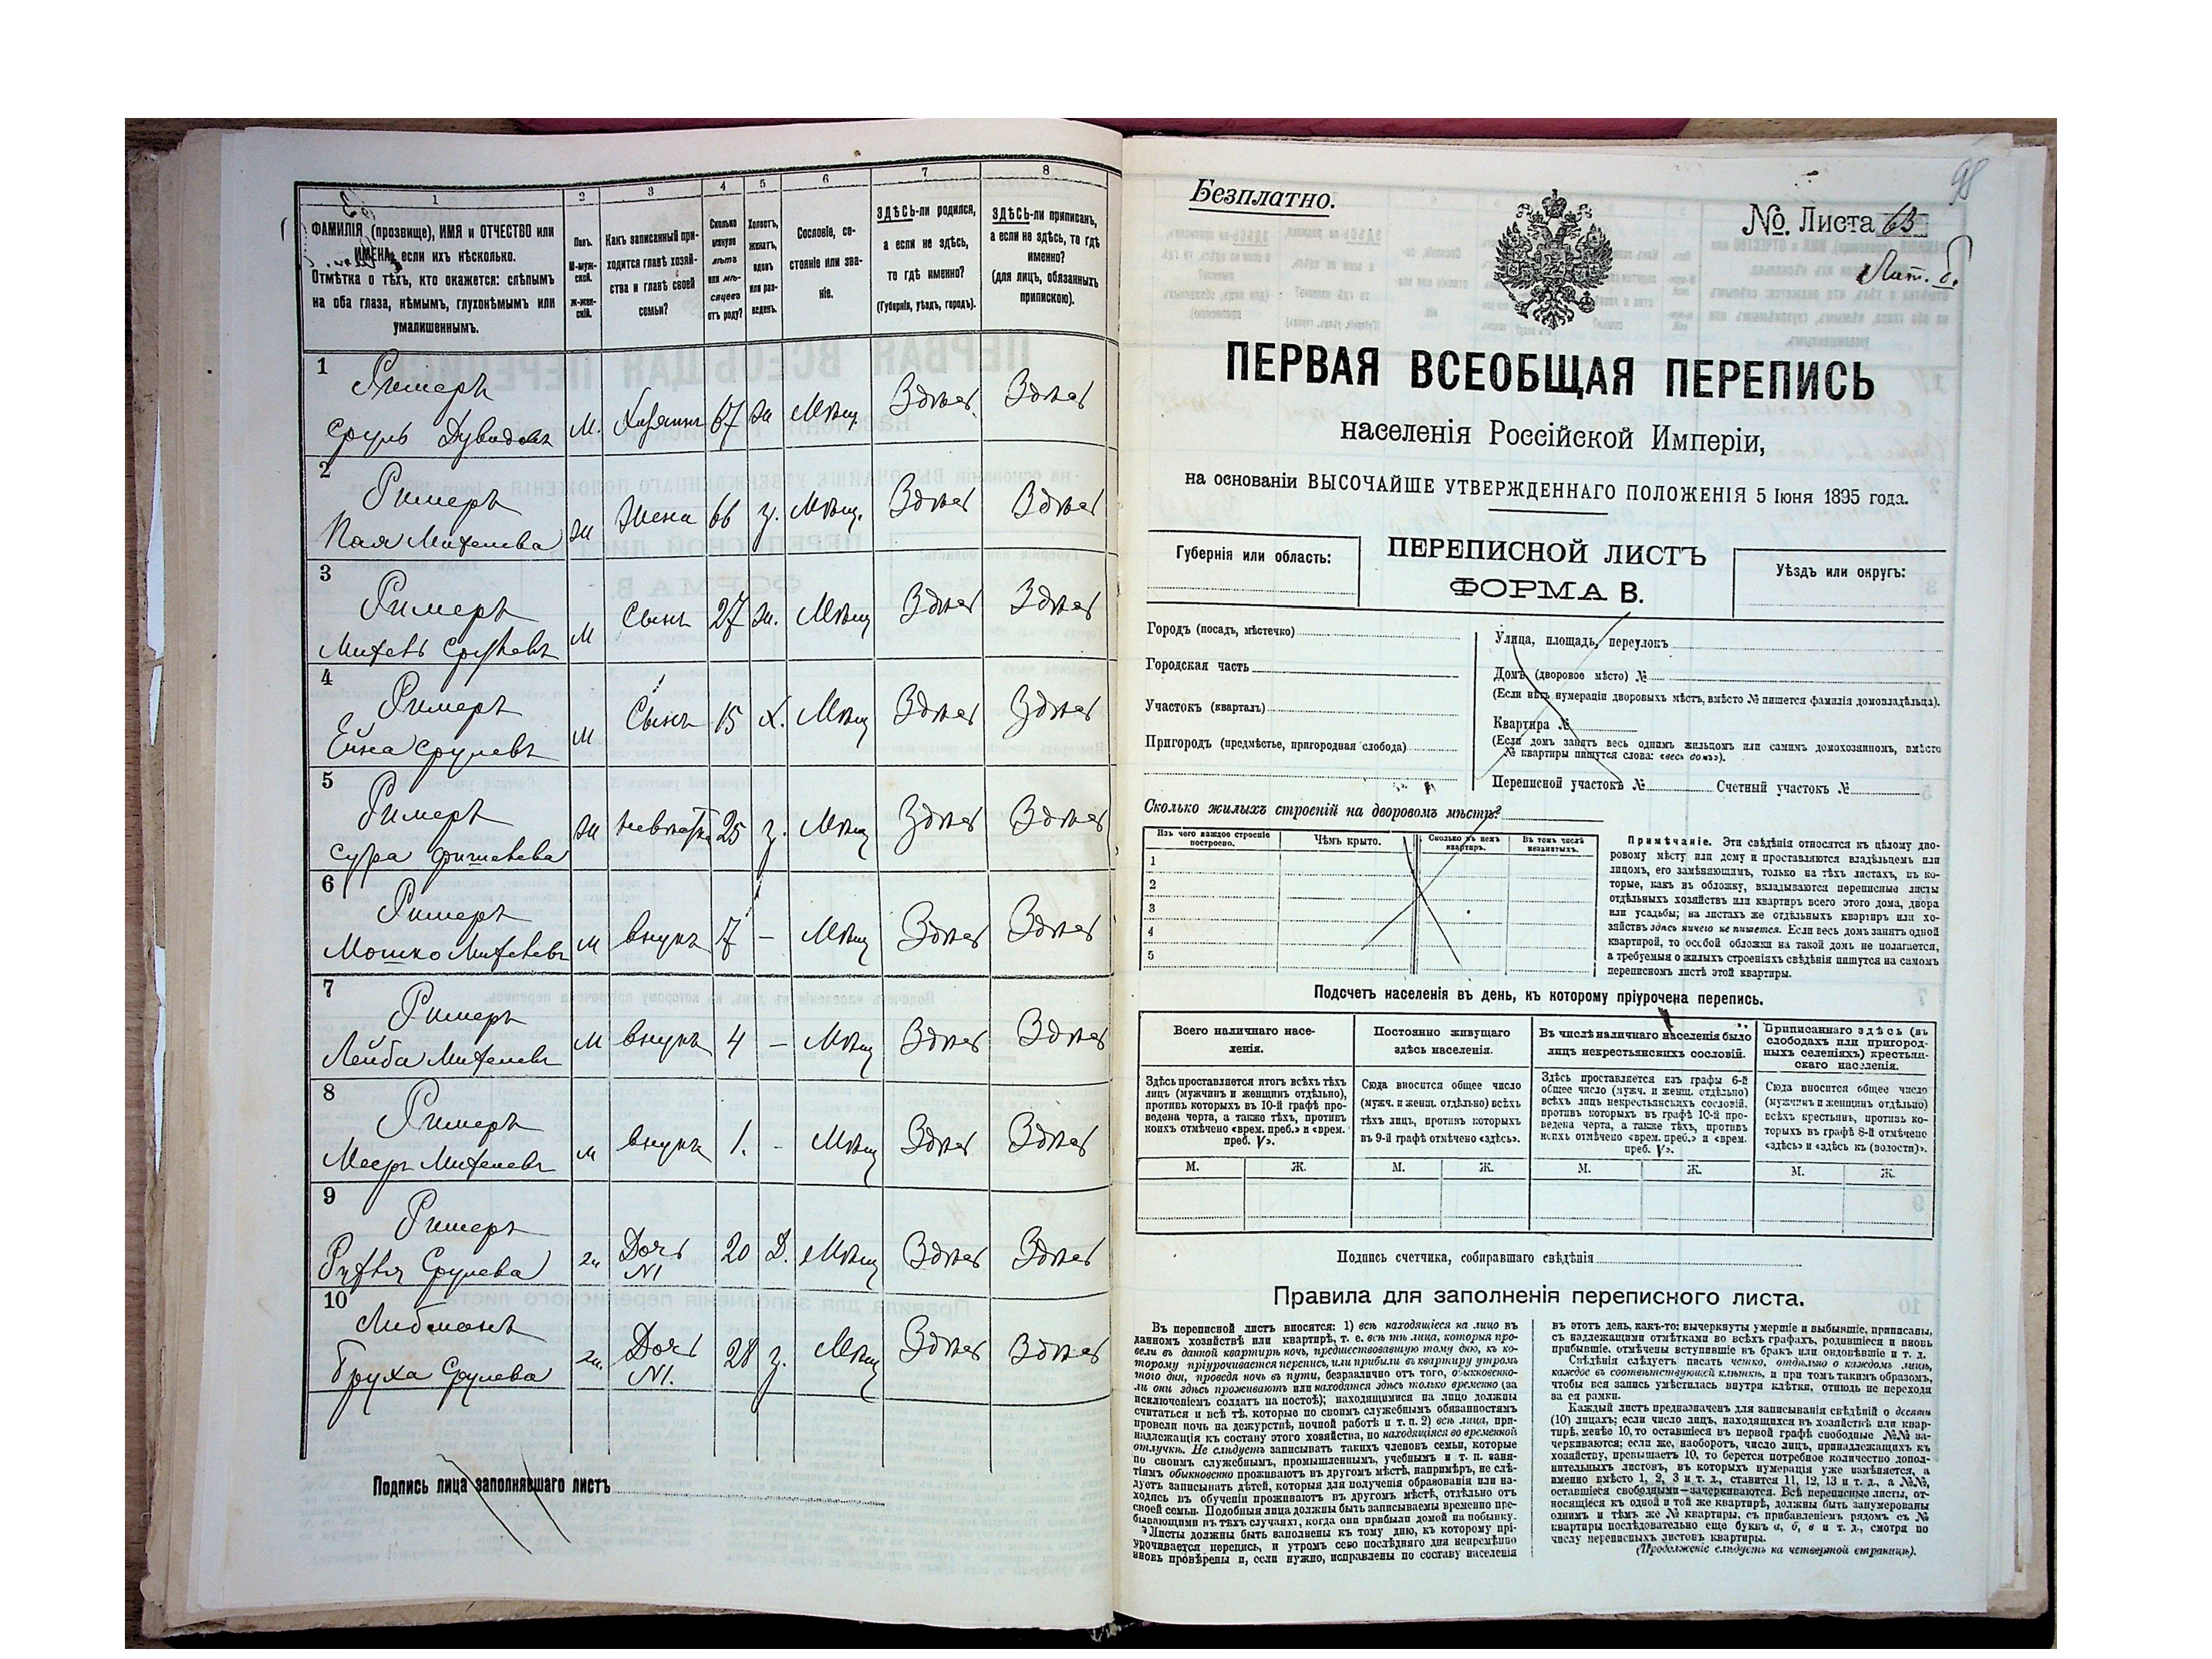 1 2 3 4 5 6 7 8
ФАМИЛІЯ (прозвище), ИМЯ и ОТЧЕСТВО или
ИМЕНА, если ихъ нѣсколько.
Отмѣтка о тѣхъ, кто окажется: слѣпымъ
на оба глаза, нѣмымъ, глухонѣмымъ или
умалишеннымъ.
Полъ.
М-муж-
ской.
Ж-жен-
скій.
Какъ записанный при-
ходится главѣ хозяй-
ства и главѣ своей
семьи?
Сколько
минуло
лѣтъ
или мѣ-
сяцевъ
отъ роду?
Холостъ,
женатъ,
вдовъ
или раз-
веденъ.
Сословіе, со-
стояніе или зва-
ніе.
ЗДѢСЬ-ли родился,
а если не здѣсь,
то гдѣ именно?
(Губернія, уѣздъ, городъ).
ЗДѢСЬ-ли приписанъ,
а если не здѣсь, то гдѣ
именно?
(для лицъ, обязанныхъ
припискою).
1
Римеръ
Сруль Дувидовъ М. Хозяинъ 67 ж Мѣщ. Здѣсь Здѣсь
2
Римеръ
Пая Михелева ж Жена 66 з. Мѣщ. Здѣсь Здѣсь
3
Римеръ
Михель Срулевъ м Сынъ 27 ж. Мѣщ Здѣсь Здѣсь
4
Римеръ
Ейна Срулевъ м Сынъ 15 х. Мѣщ Здѣсь Здѣсь
5
Римеръ
Сура Фишелева ж невѣстка 25 з. Мѣщ Здѣсь Здѣсь
6
Римеръ
Мошко Михелевъ м внукъ 7 – Мѣщ Здѣсь Здѣсь
7
Римеръ
Лейба Михелевъ м внукъ 4 – Мѣщ Здѣсь Здѣсь
8
Римеръ
Мееръ Михелевъ м внукъ 1. - Мѣщ Здѣсь Здѣсь
9
Римеръ
Рухля Срулева ж Дочь №1 20 Д. Мѣщ Здѣсь Здѣсь
10
Либманъ
Бруха Срулева ж. Дочь №1. 28 з. Мѣщ Здѣсь Здѣсь
Подпись лица заполнявшаго листъ
98
Безплатно.
№ Листа 63
Лит. б.
ПЕРВАЯ ВСЕОБЩАЯ ПЕРЕПИСЬ
населенія Россійской Имперіи,
на основаніи ВЫСОЧАЙШЕ УТВЕРЖДЕННАГО ПОЛОЖЕНІЯ 5 Іюня 1895 года.
Губернія или область:
ПЕРЕПИСНОЙ ЛИСТЪ
ФОРМА В.
Уѣздъ или округъ:
Городъ (посадъ, мѣстечко)
Городская часть
Участокъ (кварталъ)
Пригородъ (предмѣстье, пригородная слобода)
Улица, площадь, переулокъ
Домъ (дворовое мѣсто) №
(Если нѣтъ нумераціи дворовыхъ мѣстъ, вмѣсто № пишется фамилія домовладѣльца).
Квартира №
(Если домъ занятъ весь однимъ жильцомъ или самимъ домохозяиномъ, вмѣсто
№ квартиры пишутся слова: «весь домъ»).
Переписной участокъ № Счетный участокъ №
Сколько жилыхъ строеній на дворовомъ мѣстѣ?
Изъ чего каждое строеніе
построено.
Чѣмъ крыто.
Сколько въ немъ
квартиръ.
Въ томъ числѣ
незанятыхъ.
1
2
3
4
5
Примѣчаніе. Эти свѣдѣнія относятся къ цѣлому дво-
ровому мѣсту или дому и проставляются владѣльцемъ или
лицомъ, его замѣняющимъ, только на тѣхъ листахъ, въ ко-
торые, какъ въ обложку, вкладываются переписные листы
отдѣльныхъ хозяйствъ или квартиръ всего этого дома, двора
или усадьбы; на листахъ же отдѣльныхъ квартиръ или хо-
зяйствъ здѣсь ничего не пишется. Если весь домъ занятъ одной
квартирой, то особой обложки на такой домъ не полагается,
а требуемыя о жилыхъ строеніяхъ свѣдѣнія пишутся на самомъ
переписномъ листѣ этой квартиры.
Подсчетъ населенія въ день, къ которому пріурочена перепись.
Всего наличнаго насе-
ленія.
Здѣсь проставляется итогъ всѣхъ тѣхъ
лицъ (мужчинъ и женщинъ отдѣльно),
противъ которыхъ въ 10-й графѣ про-
ведена черта, а также тѣхъ, противъ
коихъ отмѣчено «врем. преб.» и «врем.
преб. V».
Постоянно живущаго
здѣсь населенія.
Сюда вносится общее число
(мужч. и женщ. отдѣльно) всѣхъ
тѣхъ лицъ, противъ которыхъ
въ 9-й графѣ отмѣчено «здѣсь».
Въ числѣ наличнаго населенія было
лицъ некрестьянскихъ сословій.
Здѣсь проставляется изъ графы 6-й
общее число (мужч. и женщ. отдѣльно)
всѣхъ лицъ некрестьянскихъ сословій,
противъ которыхъ въ графѣ 10-й про-
ведена черта, а также тѣхъ, противъ
коихъ отмѣчено «врем. преб.» и «врем.
преб. V».
Приписаннаго здѣсь (въ
слободахъ или пригород-
ныхъ селеніяхъ) крестьян-
скаго населенія.
Сюда вносится общее число
(мужчинъ и женщинъ отдѣльно)
всѣхъ крестьянъ, противъ ко-
торыхъ въ графѣ 8-й отмѣчено
«здѣсь» и «здѣсь къ (волости)».
М. Ж. М. Ж. М. Ж. М. Ж.
Подпись счетчика, собиравшаго свѣдѣнія
Правила для заполненія переписного листа.
Въ переписной листъ вносятся: 1) всѣ находящіеся на лицо въ
данномъ хозяйствѣ или квартирѣ, т. е. всѣ тѣ лица, которыя про-
вели въ данной квартирѣ ночь, предшествовавшую тому дню, къ ко-
торому пріурочивается перепись, или прибыли въ квартиру утромъ
того дня, проведя ночь въ пути, безразлично отъ того, обыкновенно-
ли они здѣсь проживаютъ или находятся здѣсь только временно (за
исключеніемъ солдатъ на постоѣ); находящимися на лицо должны
считаться и всѣ тѣ, которые по своимъ служебнымъ обязанностямъ
провели ночь на дежурствѣ, ночной работѣ и т. п. 2) всѣ лица, при-
надлежащія къ составу этого хозяйства, но находящіяся во временной
отлучкѣ. Не слѣдуетъ записывать такихъ членовъ семьи, которые
по своимъ служебнымъ, промышленнымъ, учебнымъ и т. п. заня-
тіямъ обыкновенно проживаютъ въ другомъ мѣстѣ, напримѣръ, не слѣ-
дуетъ записывать дѣтей, которыя для полученія образованія или на-
ходясь въ обученіи проживаютъ въ другомъ мѣстѣ, отдѣльно отъ
своей семьи. Подобныя лица должны быть записываемы временно пре-
бывающими въ тѣхъ случаяхъ, когда они прибыли домой на побывку.
Листы должны быть заполнены къ тому дню, къ которому прі-
урочивается перепись, и утромъ сего послѣдняго дня непремѣнно
вновь провѣрены и, если нужно, исправлены по составу населенія
въ этотъ день, какъ-то: вычеркнуты умершіе и выбывшіе, приписаны,
съ надлежащими отмѣтками во всѣхъ графахъ, родившіеся и вновь
прибывшіе, отмѣчены вступившіе въ бракъ или овдовѣвшіе и т. д.
Свѣдѣнія слѣдуетъ писать четко, отдѣльно о каждомъ лицѣ,
каждое въ соотвѣтствующей клѣткѣ, и при томъ такимъ образомъ,
чтобы вся запись умѣстилась внутри клѣтки, отнюдь не переходя
за ея рамки.
Каждый листъ предназначенъ для записыванія свѣдѣній о десяти
(10) лицахъ; если число лицъ, находящихся въ хозяйствѣ или квар-
тирѣ, менѣе 10, то оставшіеся въ первой графѣ свободные №№ за-
черкиваются; если же, наоборотъ, число лицъ, принадлежащихъ къ
хозяйству, превышаетъ 10, то берется потребное количество допол-
нительныхъ листовъ, въ которыхъ нумерація уже измѣняется, а
именно вмѣсто 1, 2, 3 и т. д., ставится 11, 12, 13 и т. д., а №№,
оставшіеся свободными—зачеркиваются. Всѣ переписные листы, от-
носящіеся къ одной и той же квартирѣ, должны быть занумерованы
однимъ и тѣмъ же № квартиры, съ прибавленіемъ рядомъ съ №
квартиры послѣдовательно еще буквъ а, б, в и т. д., смотря по
числу переписныхъ листовъ квартиры.
(Продолженіе слѣдуетъ на четвертой страницѣ).